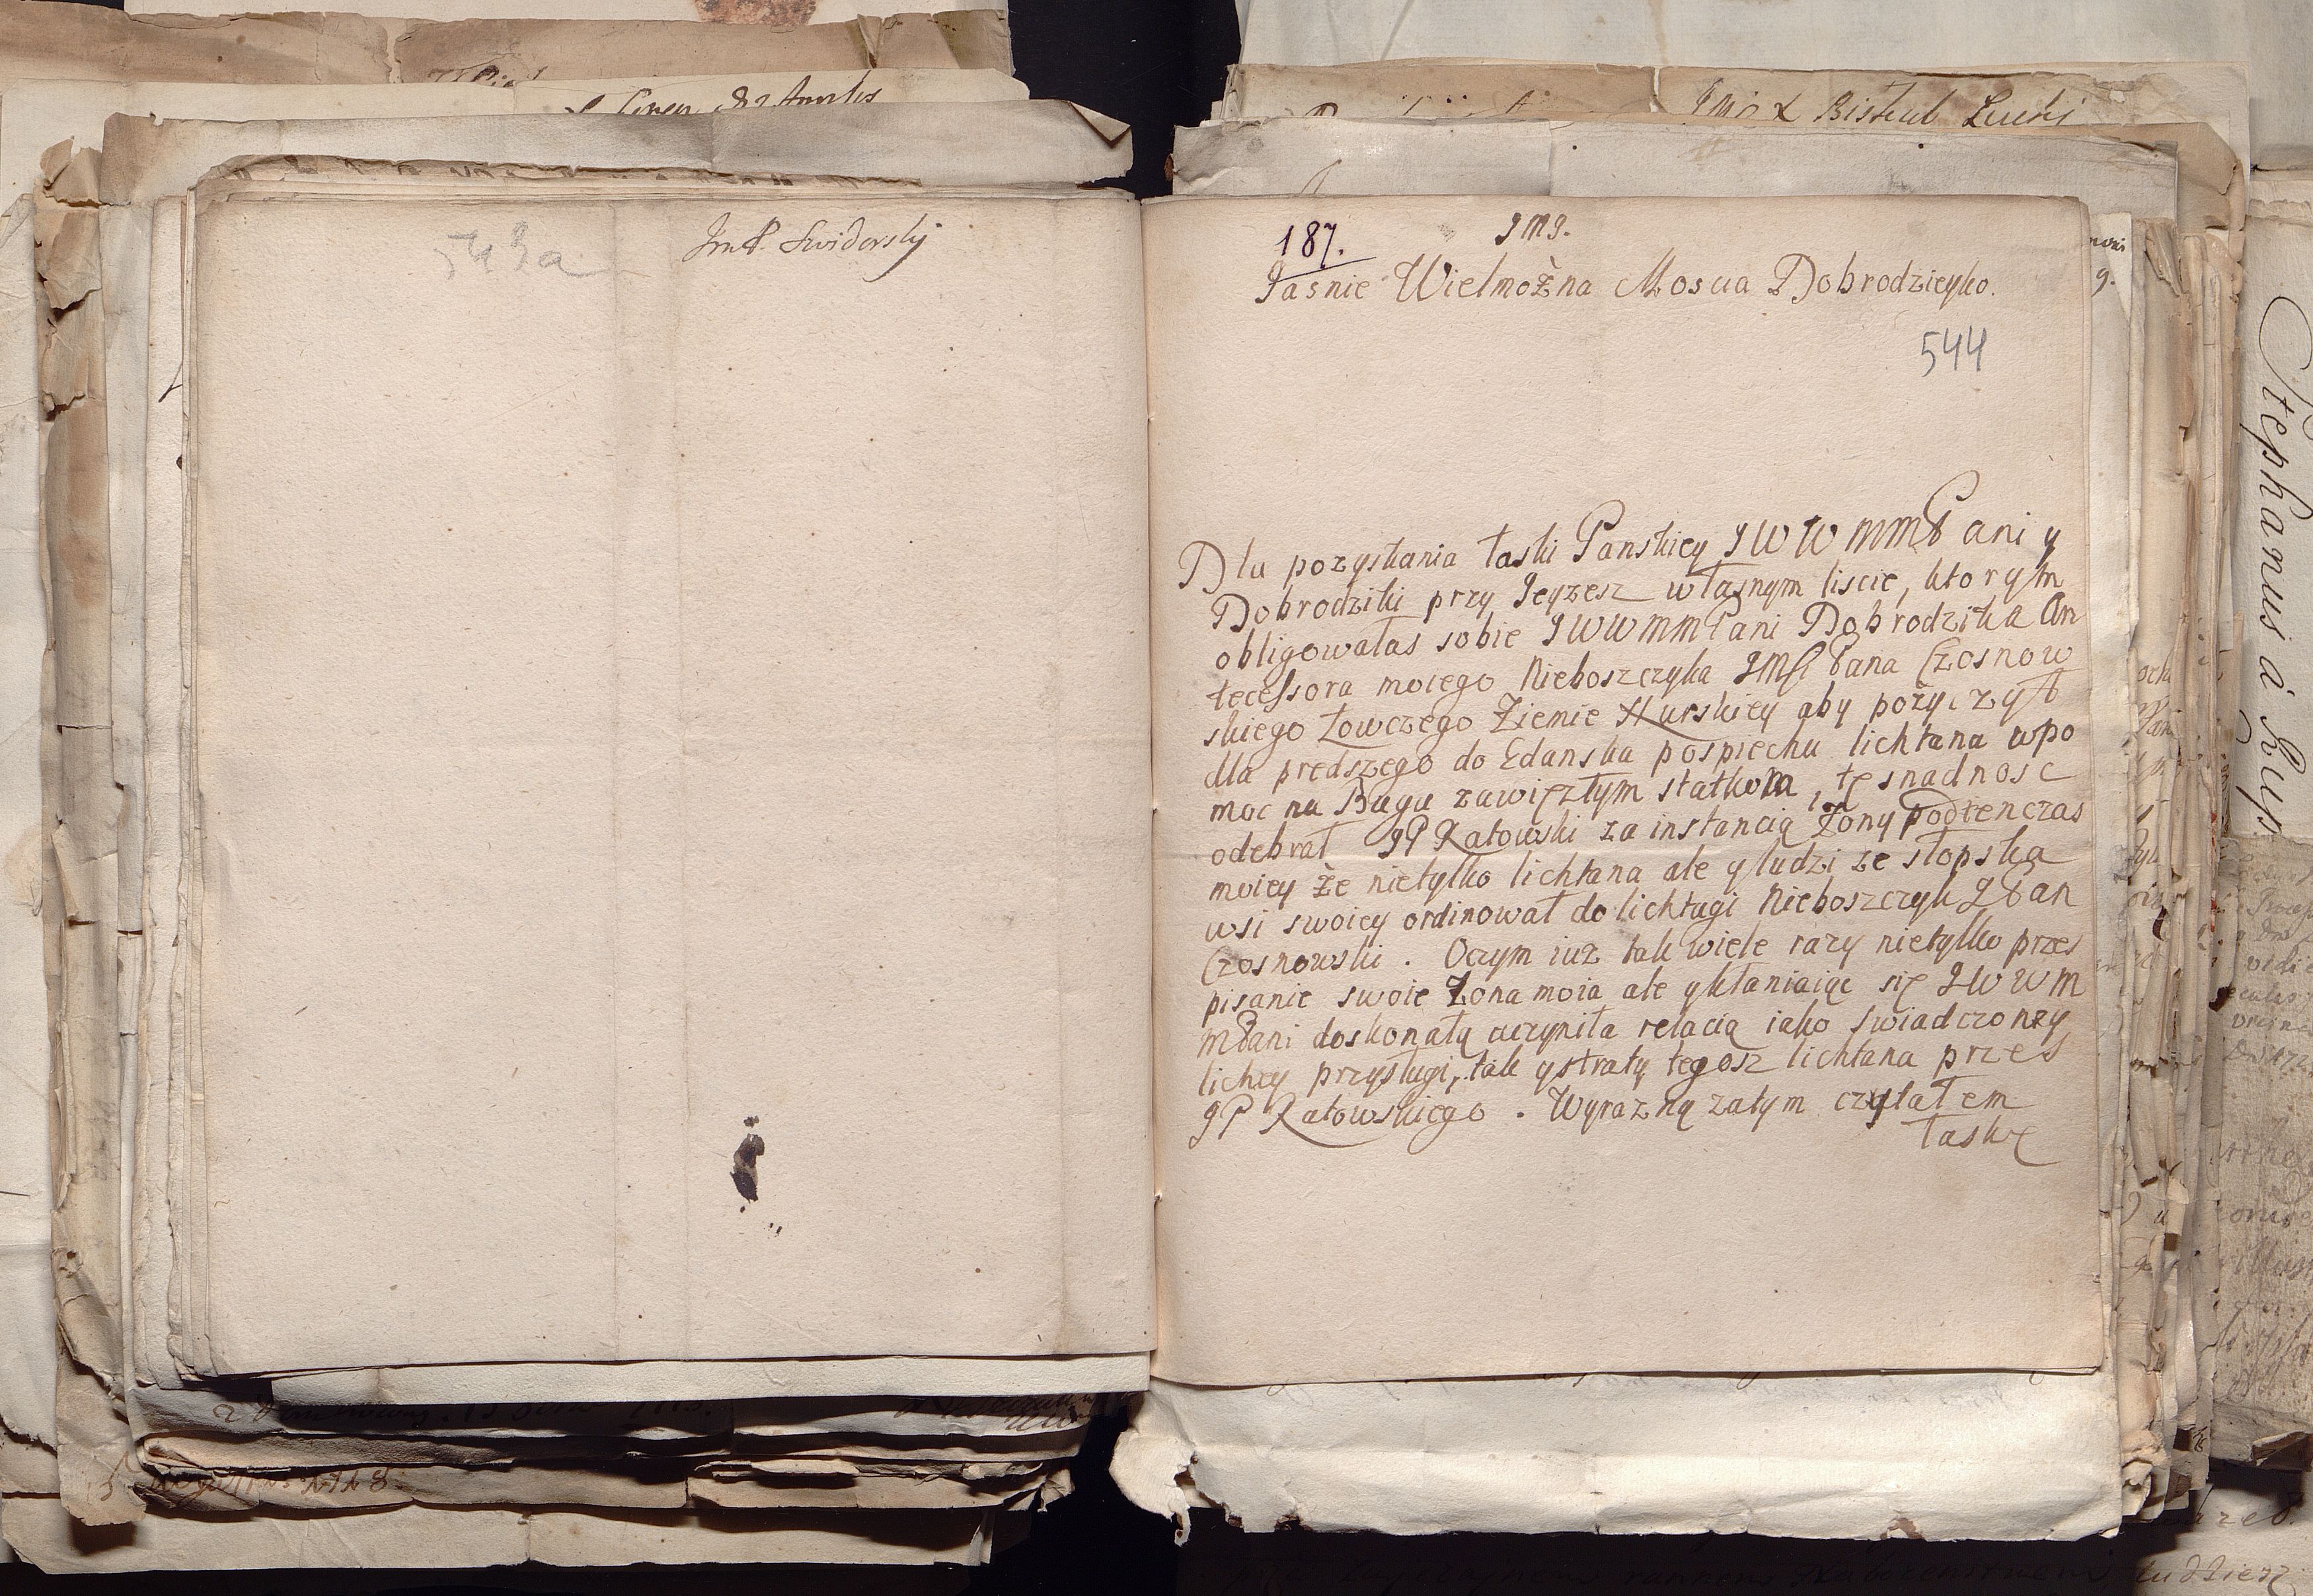 543a
JmP. Swiderskj
187.
JMJ.
Jasnie Wielmożna Moscia Dobrodzieyko.
544
Dla pozyskania łaski Panskiey JWWMMPani y
Dobrodziki przy Jeyzesz własnym liscie, ktorym
obligowałas sobie JWWMMPani Dobrodzika An
tecessora moiego Nieboszczyka JMSPana Czosnow
skiego Łowczego Ziemie Nurskiey aby pożyczył
dla prędszego do Gdanska pospiechu lichtana wpo
moc na Bugu zawięzłym statkom, tę snadnosc
odebrał JP Katowski za instancią Żony podtenczas
moiey że nietylko lichtana ale y ludzi ze słopska
wsi swoiey ordinował do lichtugi Nieboszczyk JPan
Czosnowski. Oczym iuz tak wiele razy nietylko przes
pisanie swoie Żona moia ale ykłaniaiąc się JWWM
MPani doskonałą uczyniła relacią iako swiadczonęy
lichęy przysługi, tak ystraty tegosz lichtana przes
JP Katowskiego. Wyrazną zatym czytałem
łaskę
Jmo X Biskub Lucki
Stephanus à